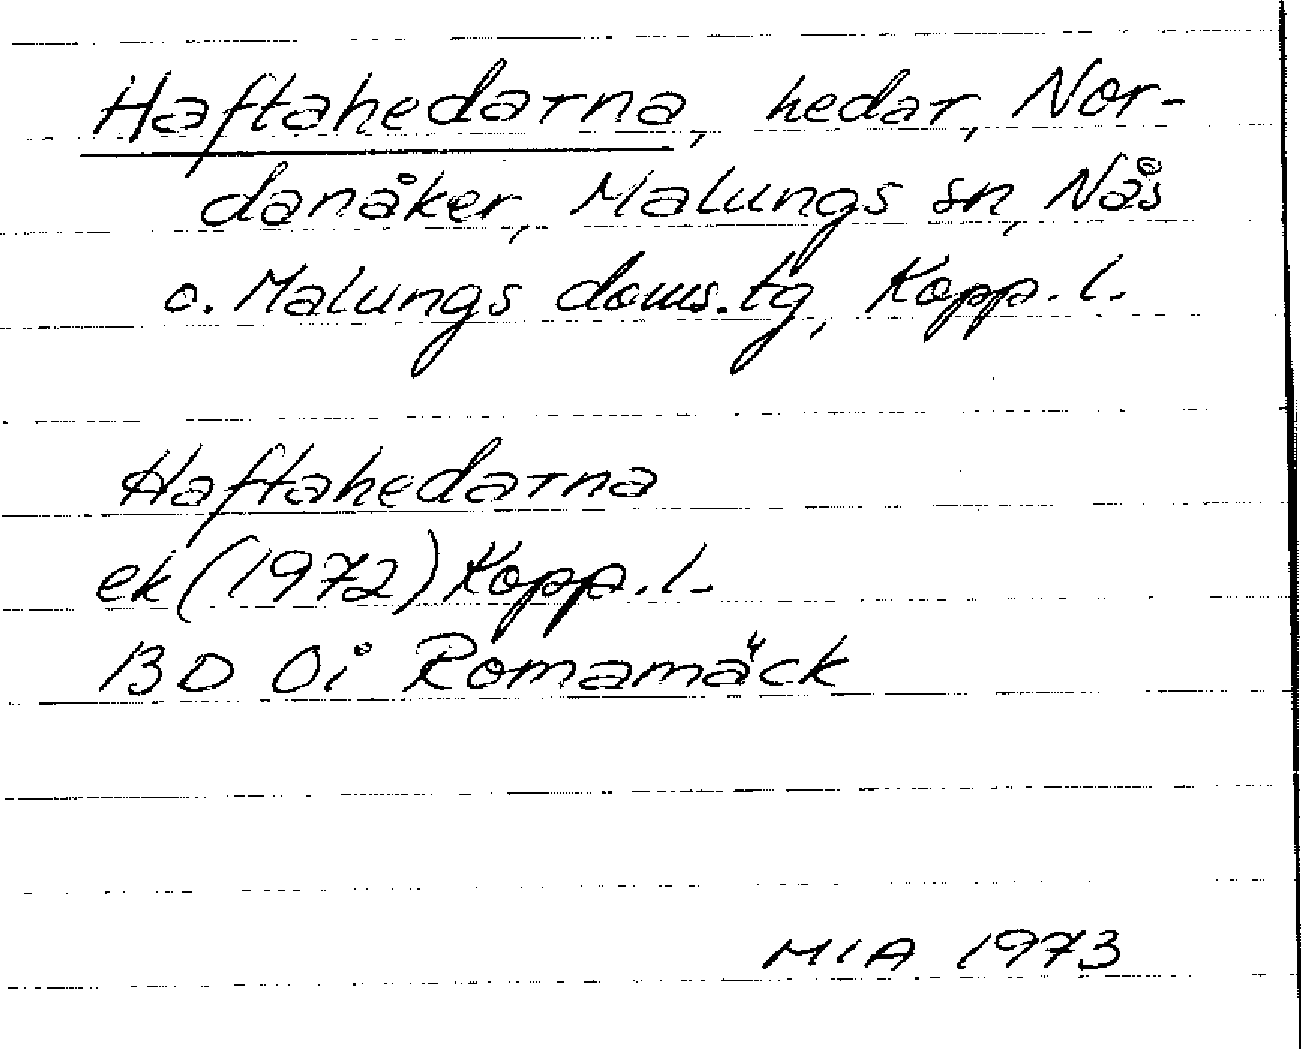 Haftahedarna, hedar, Nor-
danåker, Malungs sn, Nås
o. Malungs doms.tg, Kopp. l.
Haftahedarna
ek (1972) Kopp. l.
13D 0i Romamäck
MIA 1973